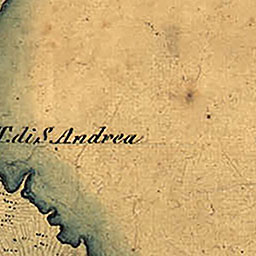 T. di S. Andrea